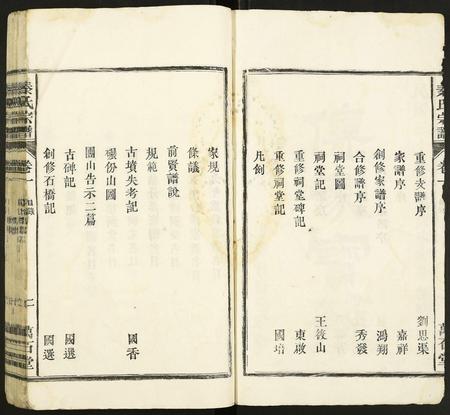 秦氏宗譜
卷一
萬石堂
重修支譜序 劉思渠
家譜序 嘉祥
創修家譜序 鴻翔
合修譜序 秀發
祠堂圖
祠堂記 王筱山
重修祠堂碑記 東啟
重修祠堂記 國培
凡例
家規
條議
前賢譜說
規範
古墳失考記 國香
墳份山圖
團山告示二篇
古碑記 國選
創修石橋記 國選
秦氏宗譜
卷一
目錄
萬石堂